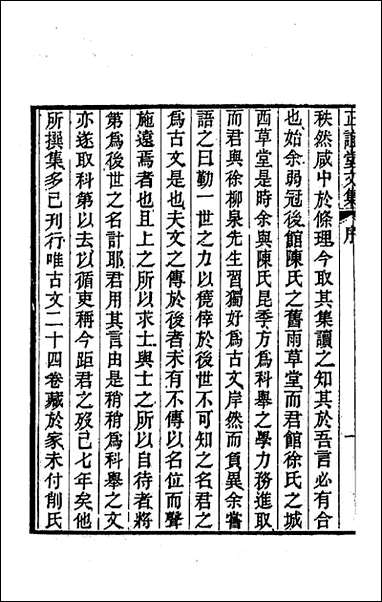 正誼堂文集　序
秩然咸中於條理今取其集讀之知其於吾言必有合
也始余弱冠後館陳氏之舊雨草堂而君館徐氏之城
西草堂是時余與陳氏昆季方爲科舉之學力務進取
而君與徐柳泉先生習獨好爲古文岸然而負異余嘗
語之曰勤一世之力以僥倖於後世不可知之名君之
爲古文是也夫文之傳於後者未有不傳以名位而聲
施遠焉者也且上之所以求士與士之所以自待者將
第爲後世之名計耶君用其言由是稍稍爲科舉之文
亦遂取科第以去以循吏稱今距君之歿已七年矣他
所撰集多已刊行唯古文二十四卷藏於家未付削氏
一